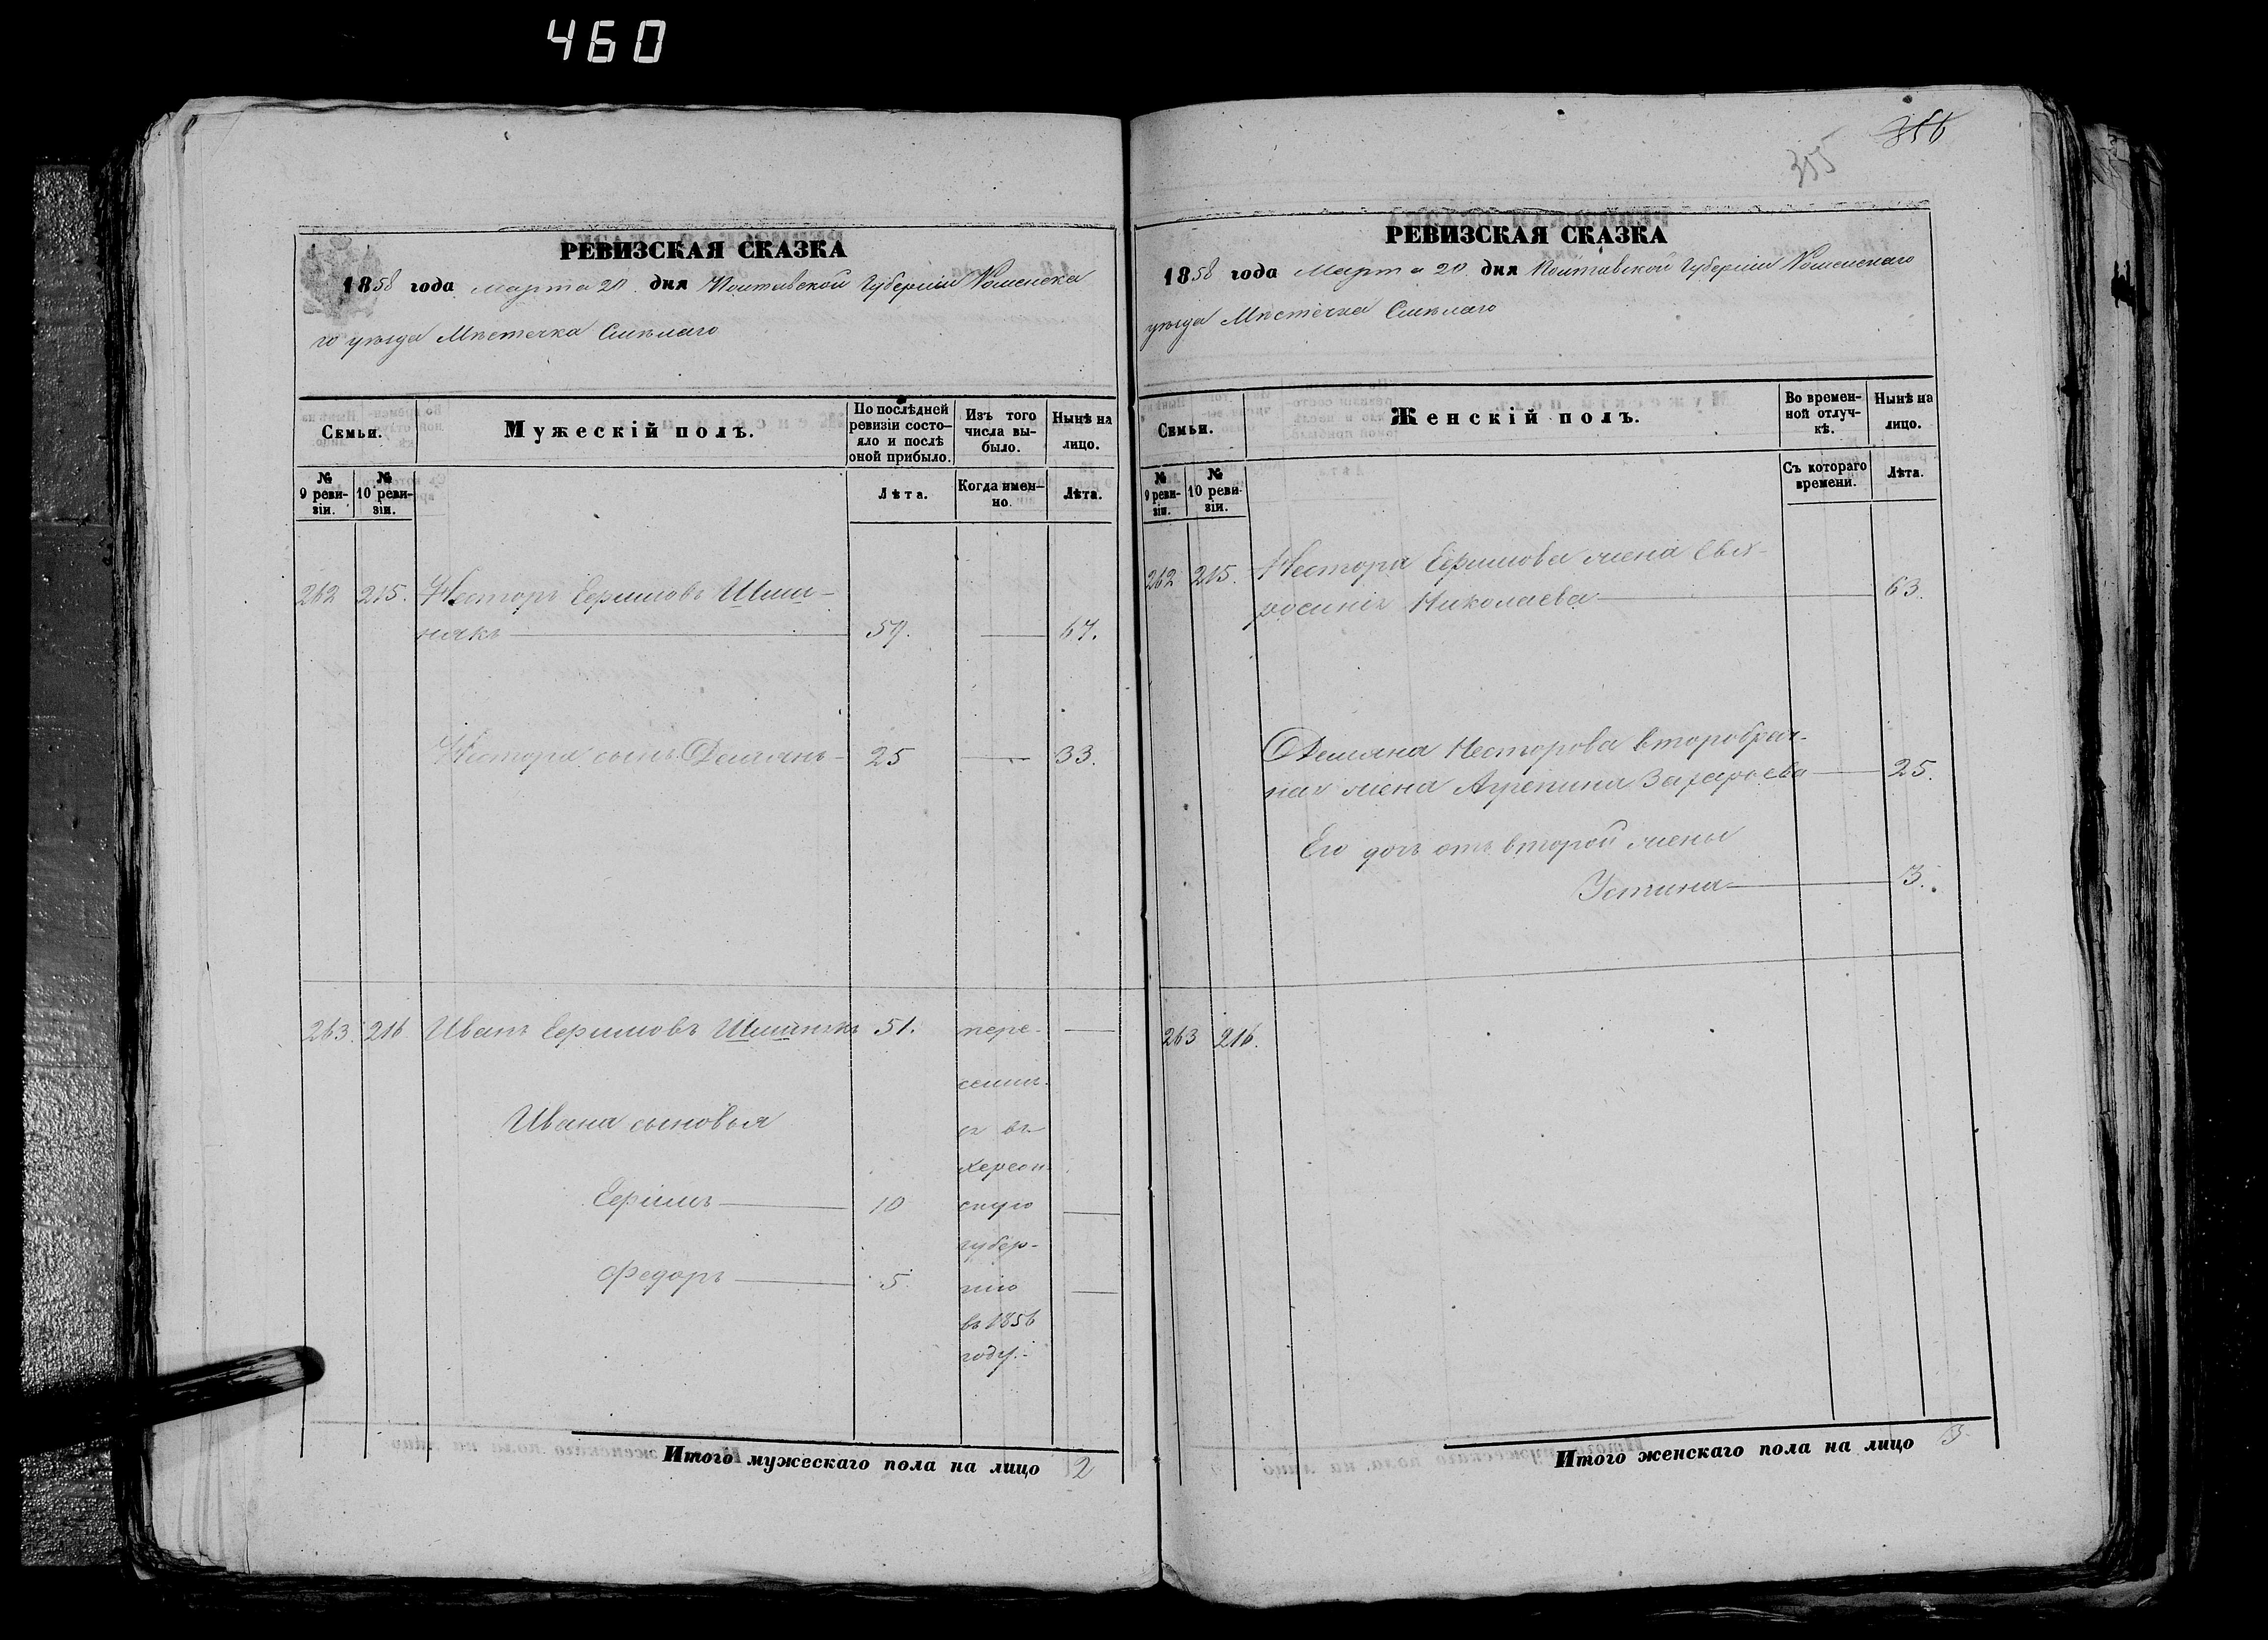 460
356
355
РЕВИЗСКАЯ СКАЗКА
1858 года Марта 20 дня Полтавской Губерніи Роменска
го уѣзда Мѣстечка Смѣлаго
Семьи.
Мужескій полъ.
По послѣдней ревизіи состо-
яло и послѣ
оной прибыло.
Изъ того
числа вы-
было.
Нынѣ на
лицо.
№
9 реви-
зіи.
№
10 реви-
зіи.
Лѣта.
Когда имен-
но.
Лѣта.
262 215. Несторъ Ефимовъ Шиш-
някъ 59. 67.
Нестора сынъ Демьянъ 25 33.
263. 216 Иванъ Ефимовъ 51. пере-
Ивана сыновья
въ
Херсон-
Ефимъ 10 скую
губер-
Федоръ 5. нію
въ 1856
году.
Итого мужескаго пола на лицо 2
РЕВИЗСКАЯ СКАЗКА
1858 года Марта 20 дня Полтавской Губерніи Роменскаго
уѣзда Мѣстечка Смѣлаго
Семьи.
Женскій полъ.
Во времен-
ной отлуч-
кѣ.
Нынѣ на
лицо.
№
9 реви-
зіи.
№
10 реви-
зіи.
Съ котораго
времени.
Лѣта.
262 215. Нестора Ефимова жена Евф-
росинія Николаева 63.
Демьяна Несторова второбрач-
ная жена Агрепина Захарьева 25.
Его дочь отъ второй жены
Устина 3.
263 216.
Итого женскаго пола на лицо 3